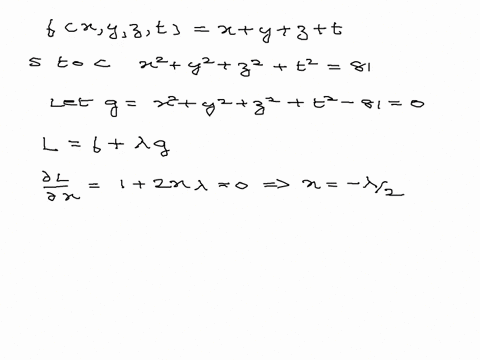 f(x,y,z,t) = x+y+z+t
s to c x²+y²+z²+t² = 81
Let g = x²+y²+z²+t²-81=0
L = f + λg
∂L/∂x = 1+2xλ=0 => x=-λ/2